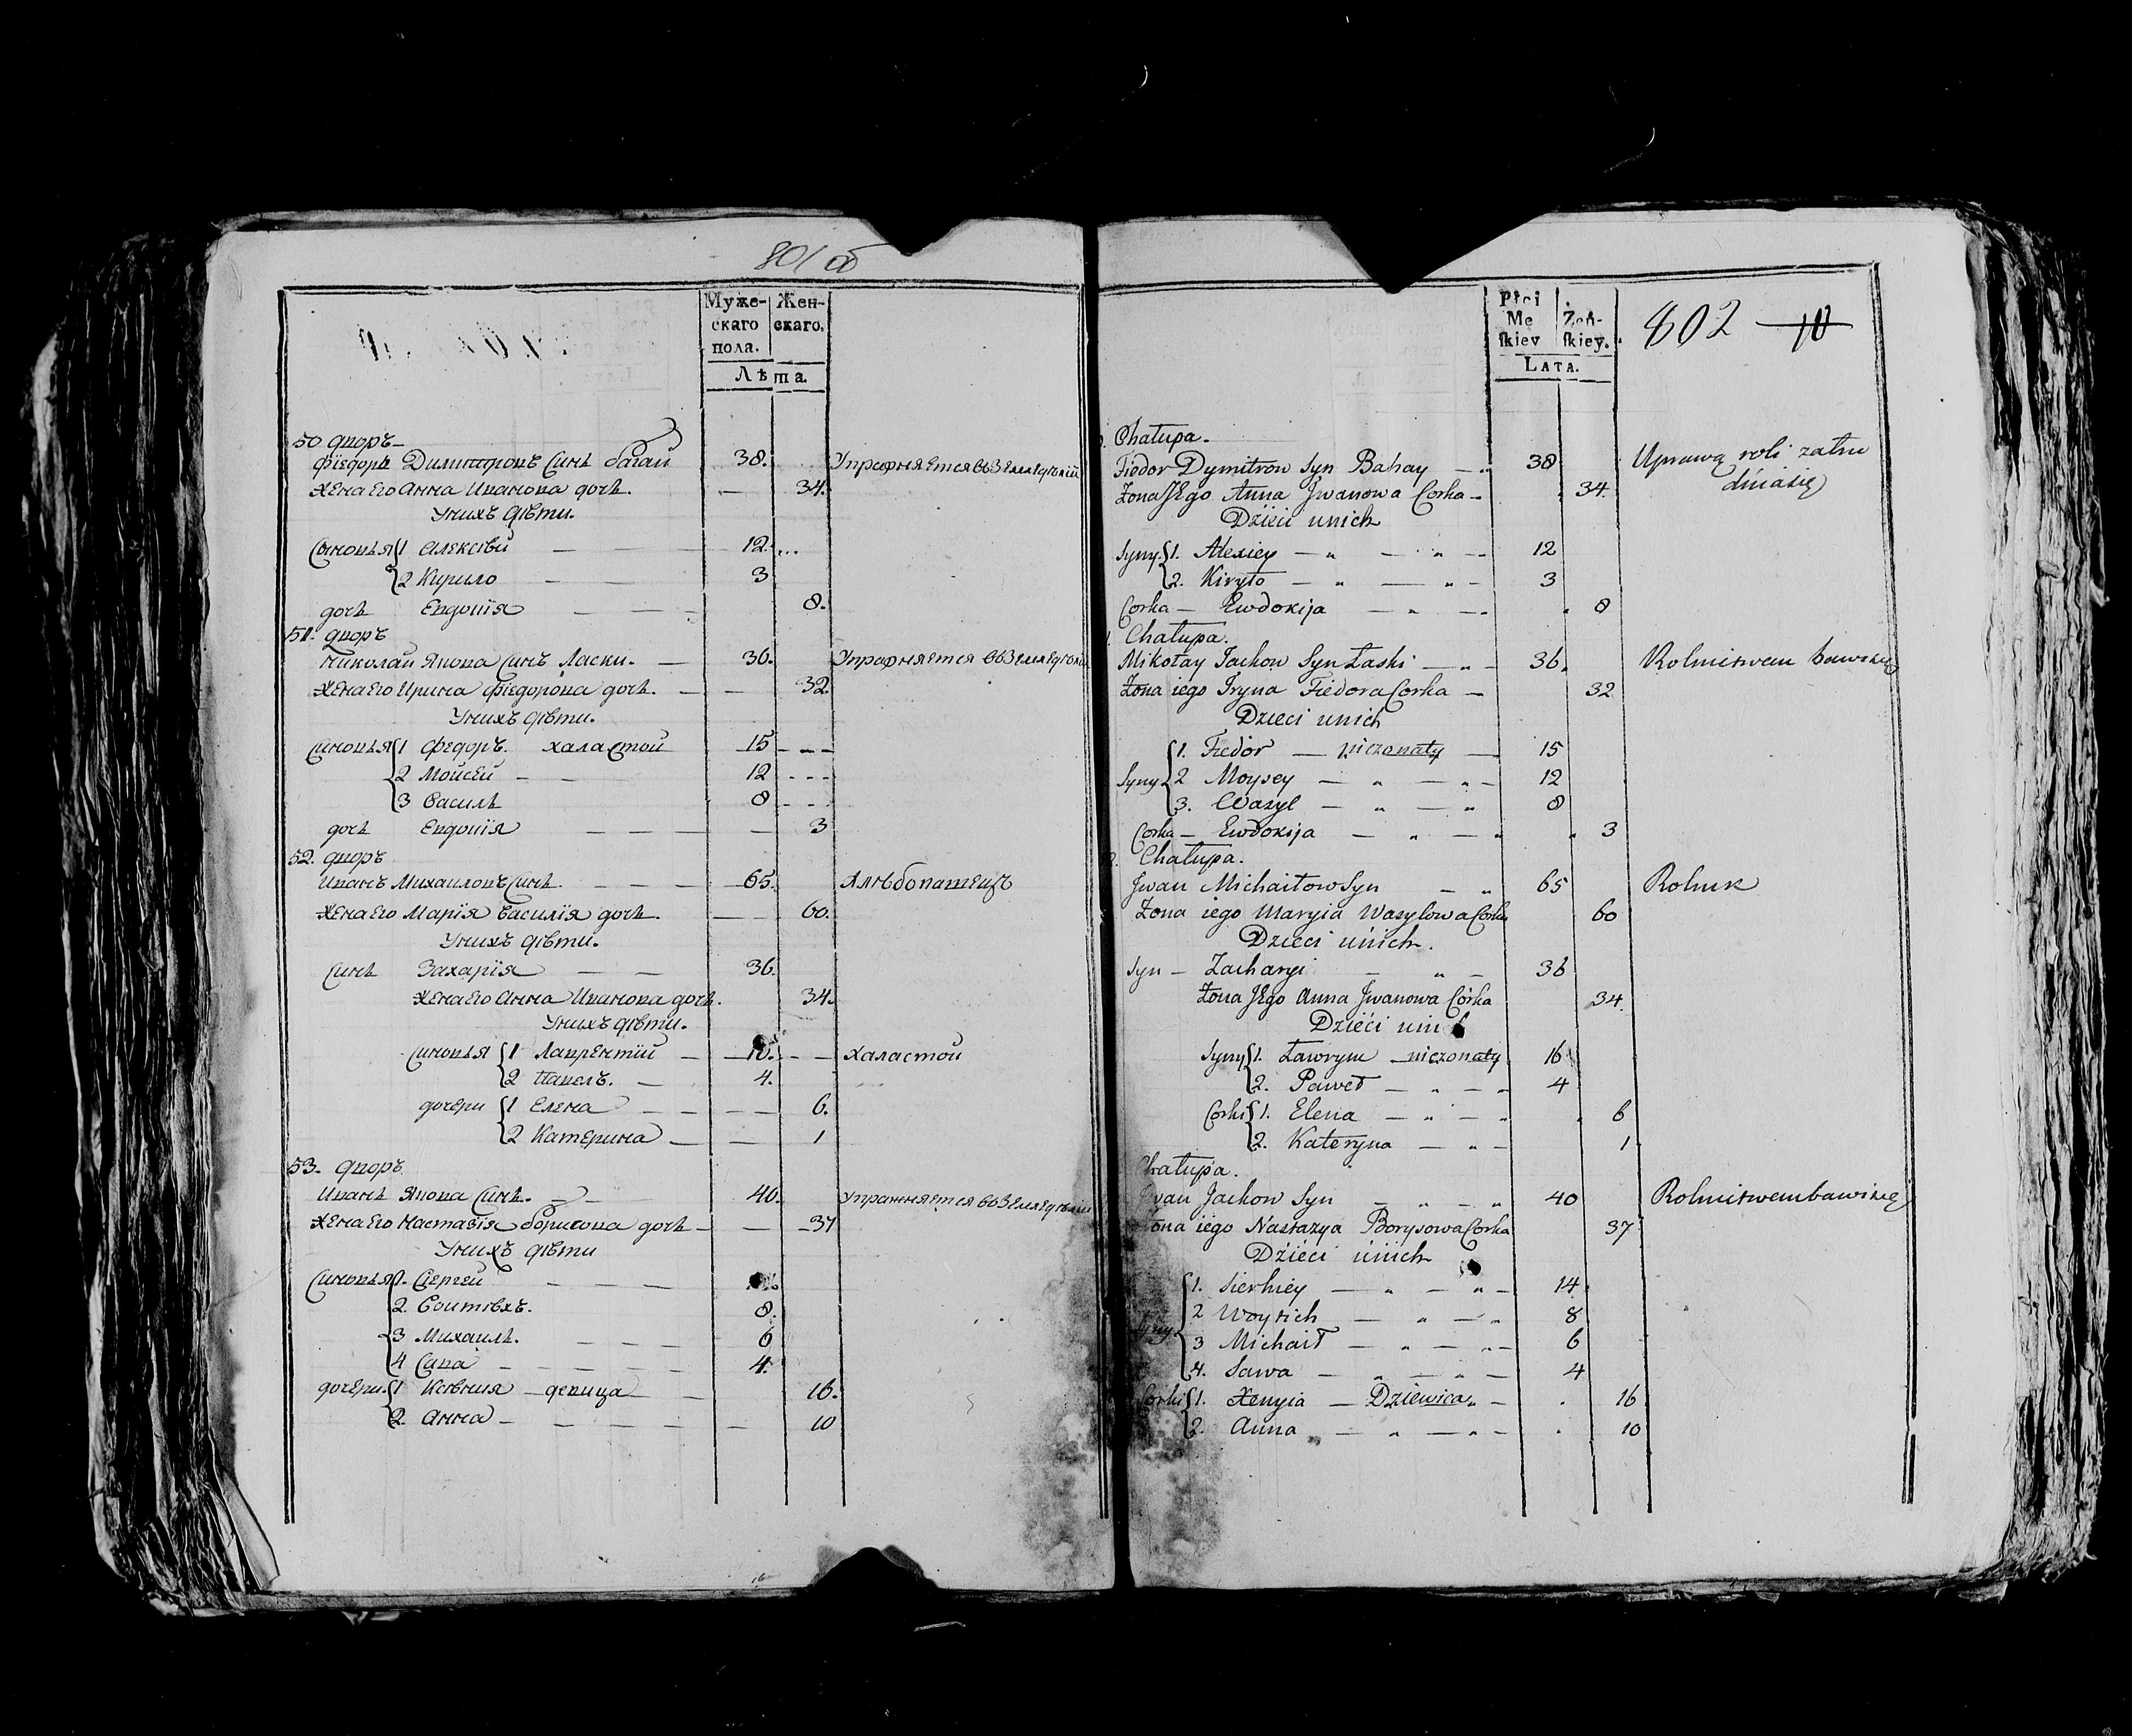 801 об
Муже-
скаго
пола.
Жен-
скаго.
Лѣта.
50 дворъ
Фіедоръ Дилитровъ Синъ багай 38. Упражняется въ Землѣделіи
Жена Его Анна Иванова дочь. 34.
У нихъ дѣти.
Синовья 1 Алексѣй 12.
2 Кирило 3
дочь Евдокія 8.
51. дворъ
Николай Якова Синъ Ласки. 36. Упражняется въ Землѣделіи
Жена Его Ирина Фіедорова дочь. 32.
У нихъ дѣти.
Синовья 1 Федоръ. халастой 15
2 Мойсей 12
3 Василь 8
дочь Евдокія 3
52. дворъ
Иванъ Михаиловъ Синъ. 65. Хлѣбопатецъ
Жена Его Марія Василія дочь. 60.
У нихъ дѣти.
Синъ Захарія 36.
Жена Его Анна Иванова дочь. 34.
У нихъ дѣти.
Синовья 1 Лаврентій 16. халастой
2 Павелъ. 4.
дочери 1 Елена 6.
2 Катерина 1
53. дворъ
Иванъ Якова Синъ. 40. Упражняется въ Землѣделіи
Жена Его Настазія Борисова дочь 37
У нихъ дѣти
Синовья 1. Сіергей
2. Войтѣхъ. 8.
3 Михаилъ. 6
4 Сава 4.
дочери 1 Ксѣния девица 16.
2. Анна 10
Płci
Mę
skiey
Żeń-
skiey.
Lata.
802 10
Chałupa.
Fiodor Dymitrow Syn Bahay 38 Uprawą roli zatru
dnia się
Żona JEgo Anna Jwanowa Corka 34.
Dzieci unich
Syny 1. Alexiey 12
2. Kiryło 3
Corka Ewdokija 8
Chałupa.
Mikołay Jachow Syn Łaski 36. Rolnistwem bawi się
Żona iego Iryna Fiedora Corka 32
Dzieci unich
1. Fiedor nieżonaty 15
Syny 2 Moysey 12
3. Wasyl 8
Corka Ewdokija 3
Chałupa.
Jwan Michaiłow Syn 65 Rolnik
Żona iego Maryia Wasylowa Corka 60
Dzieci unich.
Syn Zacharyi 36
Żona JEgo Anna Jwanowa Córka 34.
Dzieci unich
Syny 1. Ławryn nieżonaty 16
2. Paweł 4
Corki 1. Elena 6
2. Kateryna 1
Chałupa.
Jwan Jachow Syn 40 Rolnistwem bawi się
Żona iego Nastazya Borysowa Corka 37
Dzieci unich
1. Sierhiey 14
2 Woytich 8
Syny 3 Michaił 6
4. Sawa 4
Corki 1. Xenyia Dziewica 16
2. Anna 10